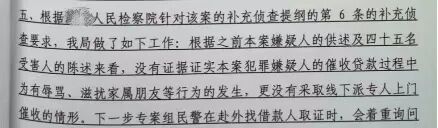 五、根据人民检察院针对该案的补充侦查提纲的第 6 条的补充侦
查要求，我局做了如下工作：根据之前本案嫌疑人的供述及四十五名
受害人的陈述来看，没有证据证实本案犯罪嫌疑人的催收贷款过程中
为有辱骂、滋扰家属朋友等行为的发生，更没有采取线下派专人上门
催收的情形。下一步专案组民警在赴外找借款人取证时，会着重询问